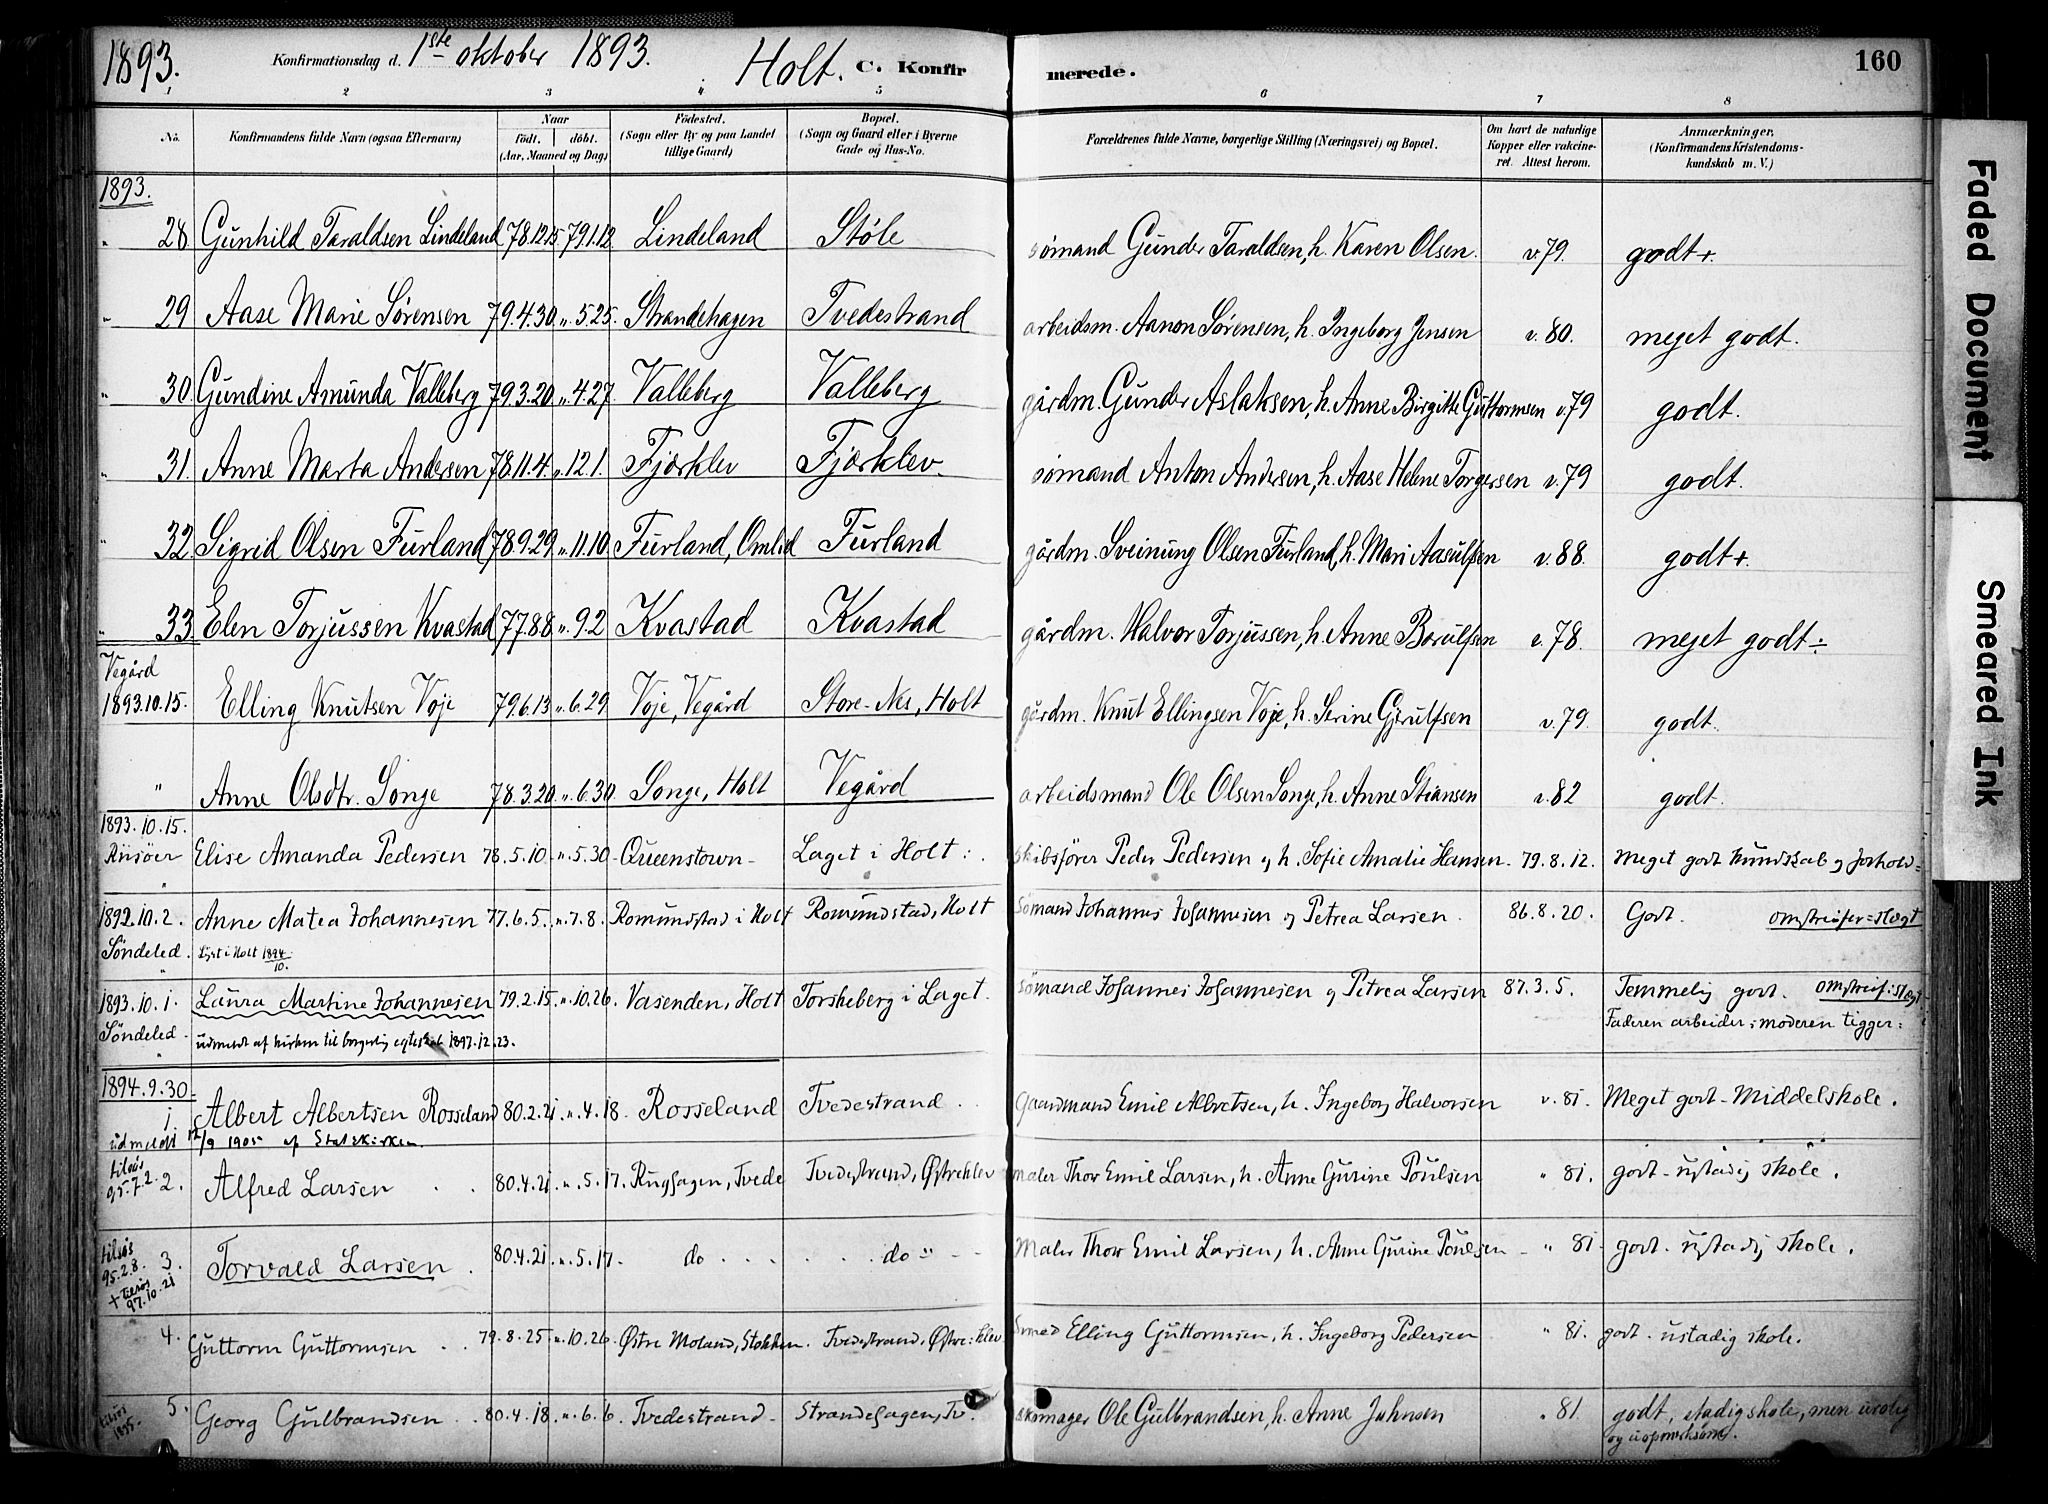 1893. Konfirmationsdag d. 1ste oktober 1893. Holt. C. Konfirmerede. 160
1 2 3 4 5 6 7 8
No. Konfirmandens fulde Navn (ogsaa Efternavn) Naar født. døbt. (Aar, Maaned og Dag) Fødested. (Sogn eller By og paa Landet tillige Gaard) Bopæl. (Sogn og Gaard eller i Byerne Gade og Hus-No. Forældrenes fulde Navne, borgerlige Stilling (Næringsvei) og Bopæl. Om havt de naturlige Kopper eller vakcineret. Attest herom. Anmærkninger. (Konfirmandens Kristendomskundskab m. V.)
1893.
" 28 Gunhild Taraldsen Lindeland 78.12.15 79.1.12 Lindeland Støle sømand Gunder Taraldsen, h. Karen Olsen. v. 79. godt+.
" 29 Aase Marie Sørensen 79.4.30 ". 5.25. Strandehagen Tvedestrand arbeidsm. Aanon Sørensen, h. Ingeborg Jensen v. 80. meget godt.
" 30 Gundine Amunda Valleberg 79.3.20 ". 4.27. Valleberg Valleberg gårdm. Gunder Aslaksen, h. Anne Birgitte Guttormsen v. 79 godt.
" 31. Anne Marta Andersen 78.11.4. ". 12.1. Fjærklev Fjærklev. sømand Anton Andersen, h. Aase Helene Torgersen v. 79 godt.
" 32 Sigrid Olsen Furland 78.9.29 ". 11.10. Furland, Omlid Furland gårdm. Sveinung Olsen Furland, h. Mari Aasulfsen v. 88. godt+.
" 33. Elen Torjussen Kvastad 77.8.8 ". 9.2 Kvastad Kvastad gårdm. Halvor Torjussen, h. Anne Borulfsen v. 78. meget godt÷
Vegård
1893.10.15. Elling Knutsen Voje 79.6.13 ". 6.29 Voje, Vegård Store-Nes, Holt gårdm. Knut Ellingsen Voje, h. Serine Gjerulfsen v. 79. godt.
" Anne Olsdtr. Songe 78.3.20 ". 6.30 Songe, Holt Vegård arbeidsmand Ole Olsen Songe, h. Anne Stiansen v. 82 godt.
1893.10.15.
Riisöer Elise Amanda Pedersen 78.5.10. ". 5.30 Queenstown Laget i Holt. skibsförer Peder Pedersen og h. Sofie Amalie Hansen. 79.8.12. Meget godt kundskab og forhold
1892.10.2. Anne Matea Johannesen 77.6.5. ". 7.8. Romundstad i Holt Romundstad, Holt Sömand Johannes Johannesen og Petrea Larsen. 86.8.20. Godt. omstreifer=slægt
Söndeled. Lyst i Holt 1894/10.
1893.10.1. Laura Martine Johannesen 79.2.15. ". 10.26. Vasenden, Holt Torskeberg i Laget. sömand Johannes Johannesen og Petrea Larsen 87.3.5. Temmelig godt. omstreif: slægt
Söndeled udmeldt af kirken til borgerlig egteskab 1897.12.23. Faderen arbeider; moderen tigger:
1894.9.30
1. Albert Albertsen Rosseland 80.2.21. ". 4.18. Rosseland Tvedestrand. Gaardmand Emil Albretsen, h. Ingeborg Halvorsen v. 81. Meget godt - Middelskole.
udmeldt 12/9 1905 af Statskirken.
tilsøs 95.7.2. 2. Alfred Larsen 80.4.21 ". 5.17. Rughagen, Tvede Tvedestrand, Østreklev Maler Thov Emil Larsen, h. Anne Gurine Poulsen " 81. godt - ustadig skole.
tilsøs 95.2.8. 3. Torvald Larsen. 80.4.21. ". 5.17. do do " Maler Thov Emil Larsen, h. Anne Gurine Poulsen " 81. godt. ustadig skole.
+ tilsøs 97.10.21
4. Guttorm Guttormsen 79.8.25. ". 10.26. Østre Moland, Stokken. Tvedestrand, Østre:klev Smed Elling Guttormsen, h. Ingeborg Pedersen " 81. godt. ustadig skole.
tilsøs 1895. 5. Georg Gulbrandsen 80.4.18. ". 6.6 Tvedestrand. Strandehagen, Tv. skomager Ole Gulbrandsen, h. Anne Juhnsen " 81. godt, stadig skole, men urolig
og uopmerksom.
Faded Document
Smeared Ink